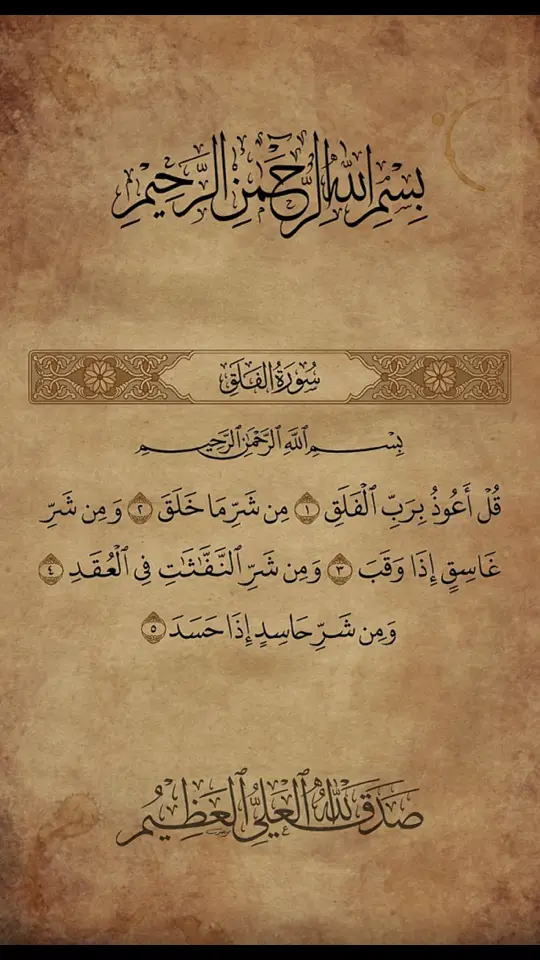 بِسْمِ اللهِ الرَّحْمَنِ الرَّحِيمِ
سُورَةُ الفَلَقِ
بِسْمِ ٱللَّهِ ٱلرَّحْمَٰنِ ٱلرَّحِيمِ
قُلْ أَعُوذُ بِرَبِّ ٱلْفَلَقِ ١ مِن شَرِّ مَا خَلَقَ ٢ وَمِن شَرِّ
غَاسِقٍ إِذَا وَقَبَ ٣ وَمِن شَرِّ ٱلنَّفَّٰثَٰتِ فِى ٱلْعُقَدِ ٤
وَمِن شَرِّ حَاسِدٍ إِذَا حَسَدَ ٥
صَدَقَ ٱللهُ ٱلْعَلِيُّ ٱلْعَظِيمُ